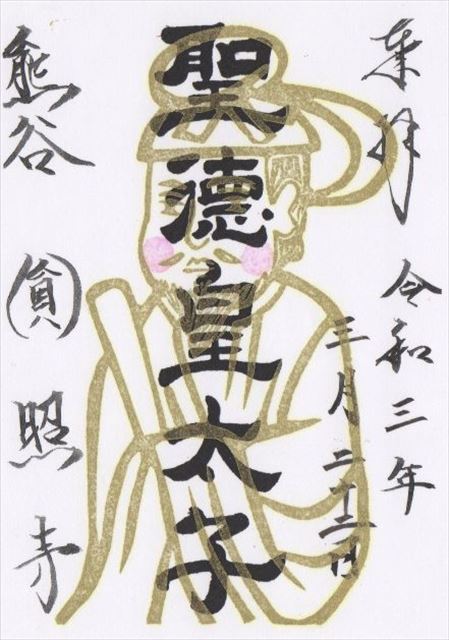 奉拝 令和三年
三月二十二日
聖徳皇太子
熊谷 圓照寺